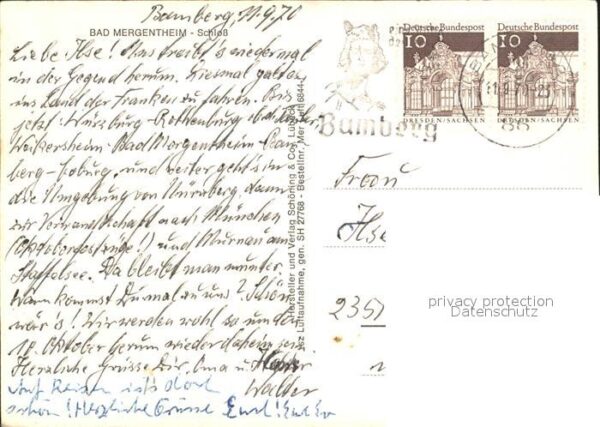 Bamberg, 11.9.70
BAD MERGENTHEIM - Schloß
Liebe Ilse! Uns treibt's wiedermal
in der Gegend herum. Diesmal galt es,
ins Land der Franken zu fahren. Bis
jetzt: Würzburg - Rothenburg o. d. Tauber
Weikersheim - Bad Mergentheim - Bam-
berg - Coburg, und weiter geht's in
die Umgebung von Nürnberg, dann
zur Verwandtschaft nach München
(Oktoberfestzüge!) und Murnau am
Staffelsee. Da bleibt man munter.
Wann kommst Du mal zu uns? Schön
wär's! Wir werden wohl so um den
10. Oktober herum wieder daheim sein.
Herzliche Grüsse Dir, Oma u.
Walter
Auf Reisen ist's doch
schön! Herzliche Grüsse
Hersteller und Verlag Schöning & Co., Lübeck
gen. SH 27768 - Bestellnr. Mer
Deutsche Bundespost
10
DRESDEN/SACHSEN
Deutsche Bundespost
10
DRESDEN/SACHSEN
Bamberg
86
Frau
Ilse
235
privacy protection
Datenschutz